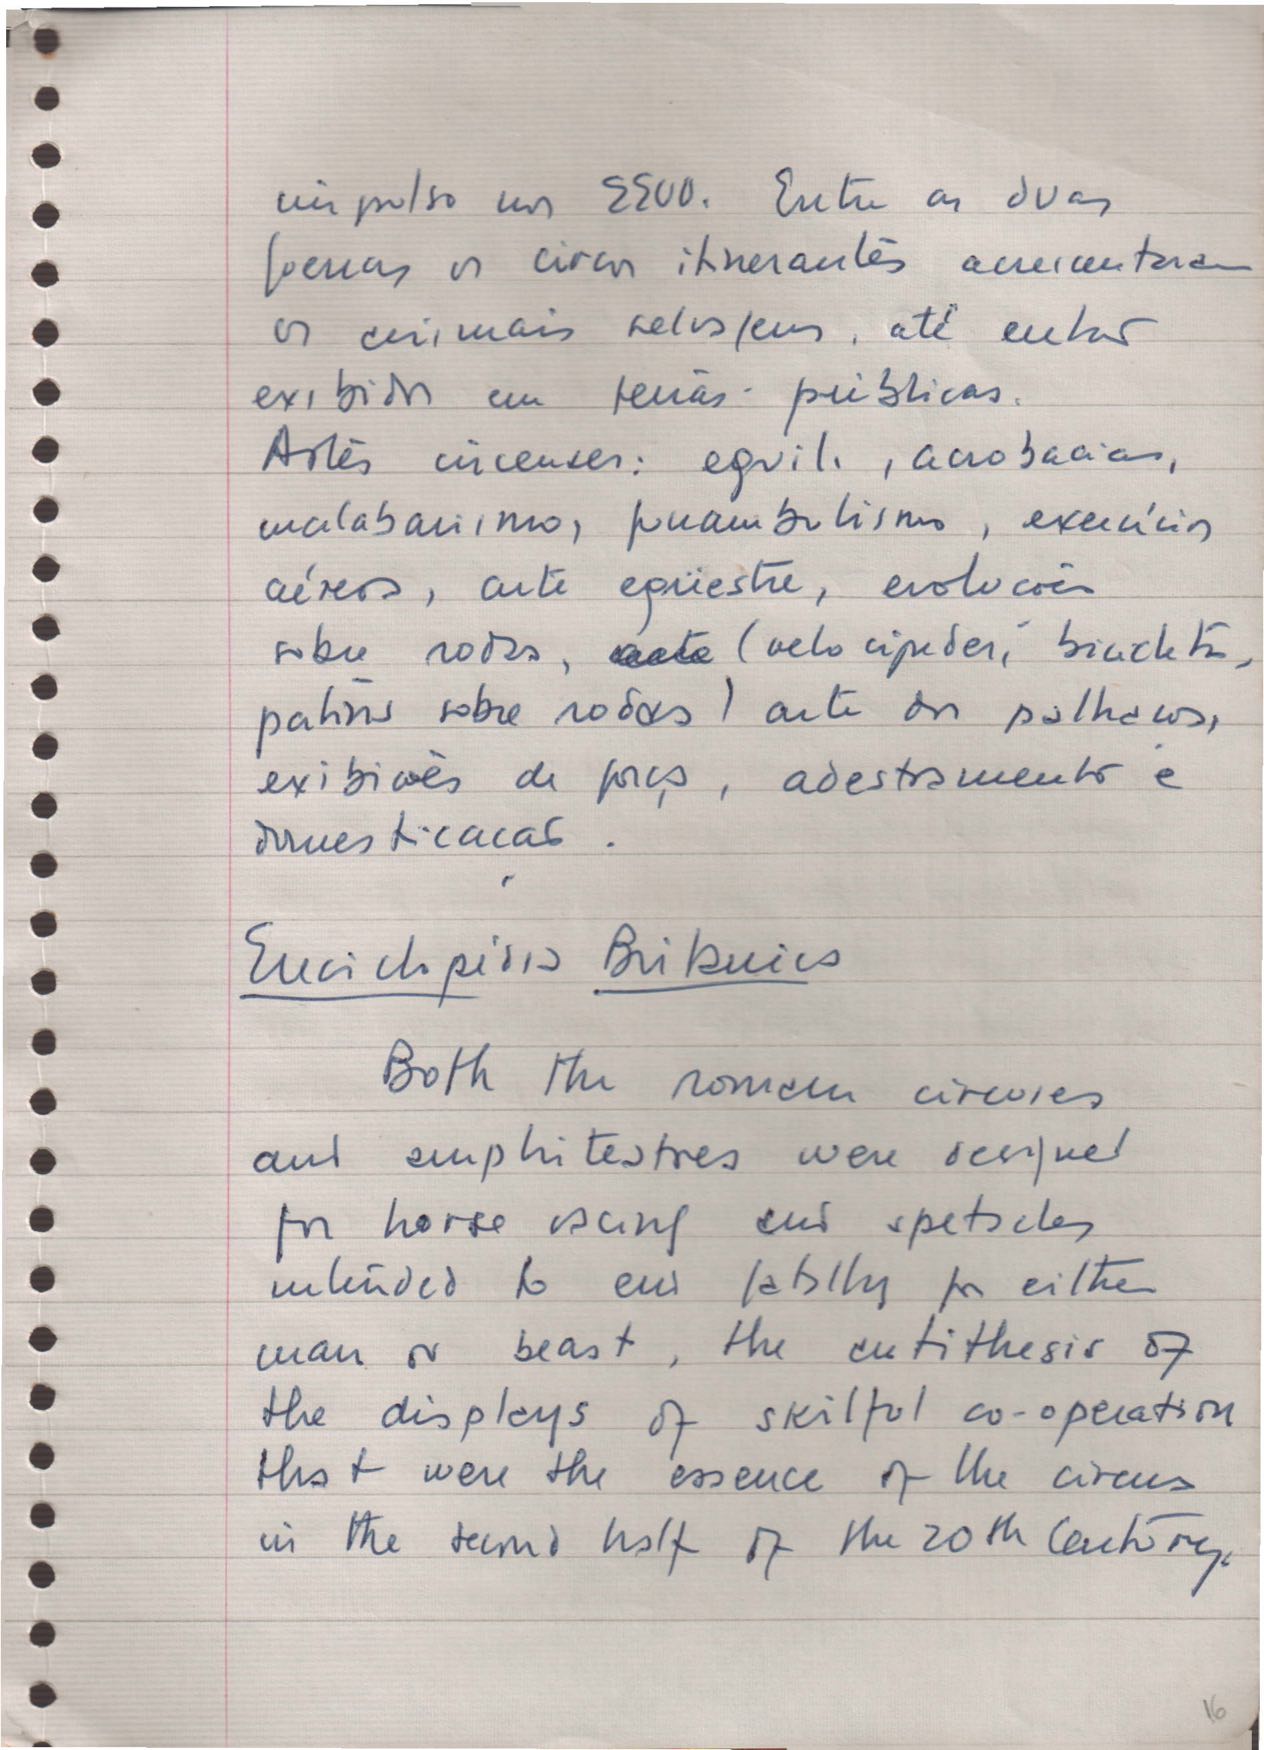 impulso nos EEUU. Entre as duas
guerras os circos itinerantes acrescentaram
os animais selvagens, até então
exibidos em feiras públicas.
Artes circenses: equil., acrobacias,
malabarismo, funambulismo, exercícios
aéreos, arte eqüestre, evoluções
sobre rodas, (velocípedes, bicicletas,
patins sobre rodas) arte dos palhaços,
exibições de força, adestramento e
domesticação.
Enciclopédia Britanica
Both the roman circuses
and amphiteatres were designed
for horse racing and spetacles
intended to end fatally for either
man or beast, the antithesis of
the displays of skilful co-operation
that were the essence of the circus
in the second half of the 20th Century.
16